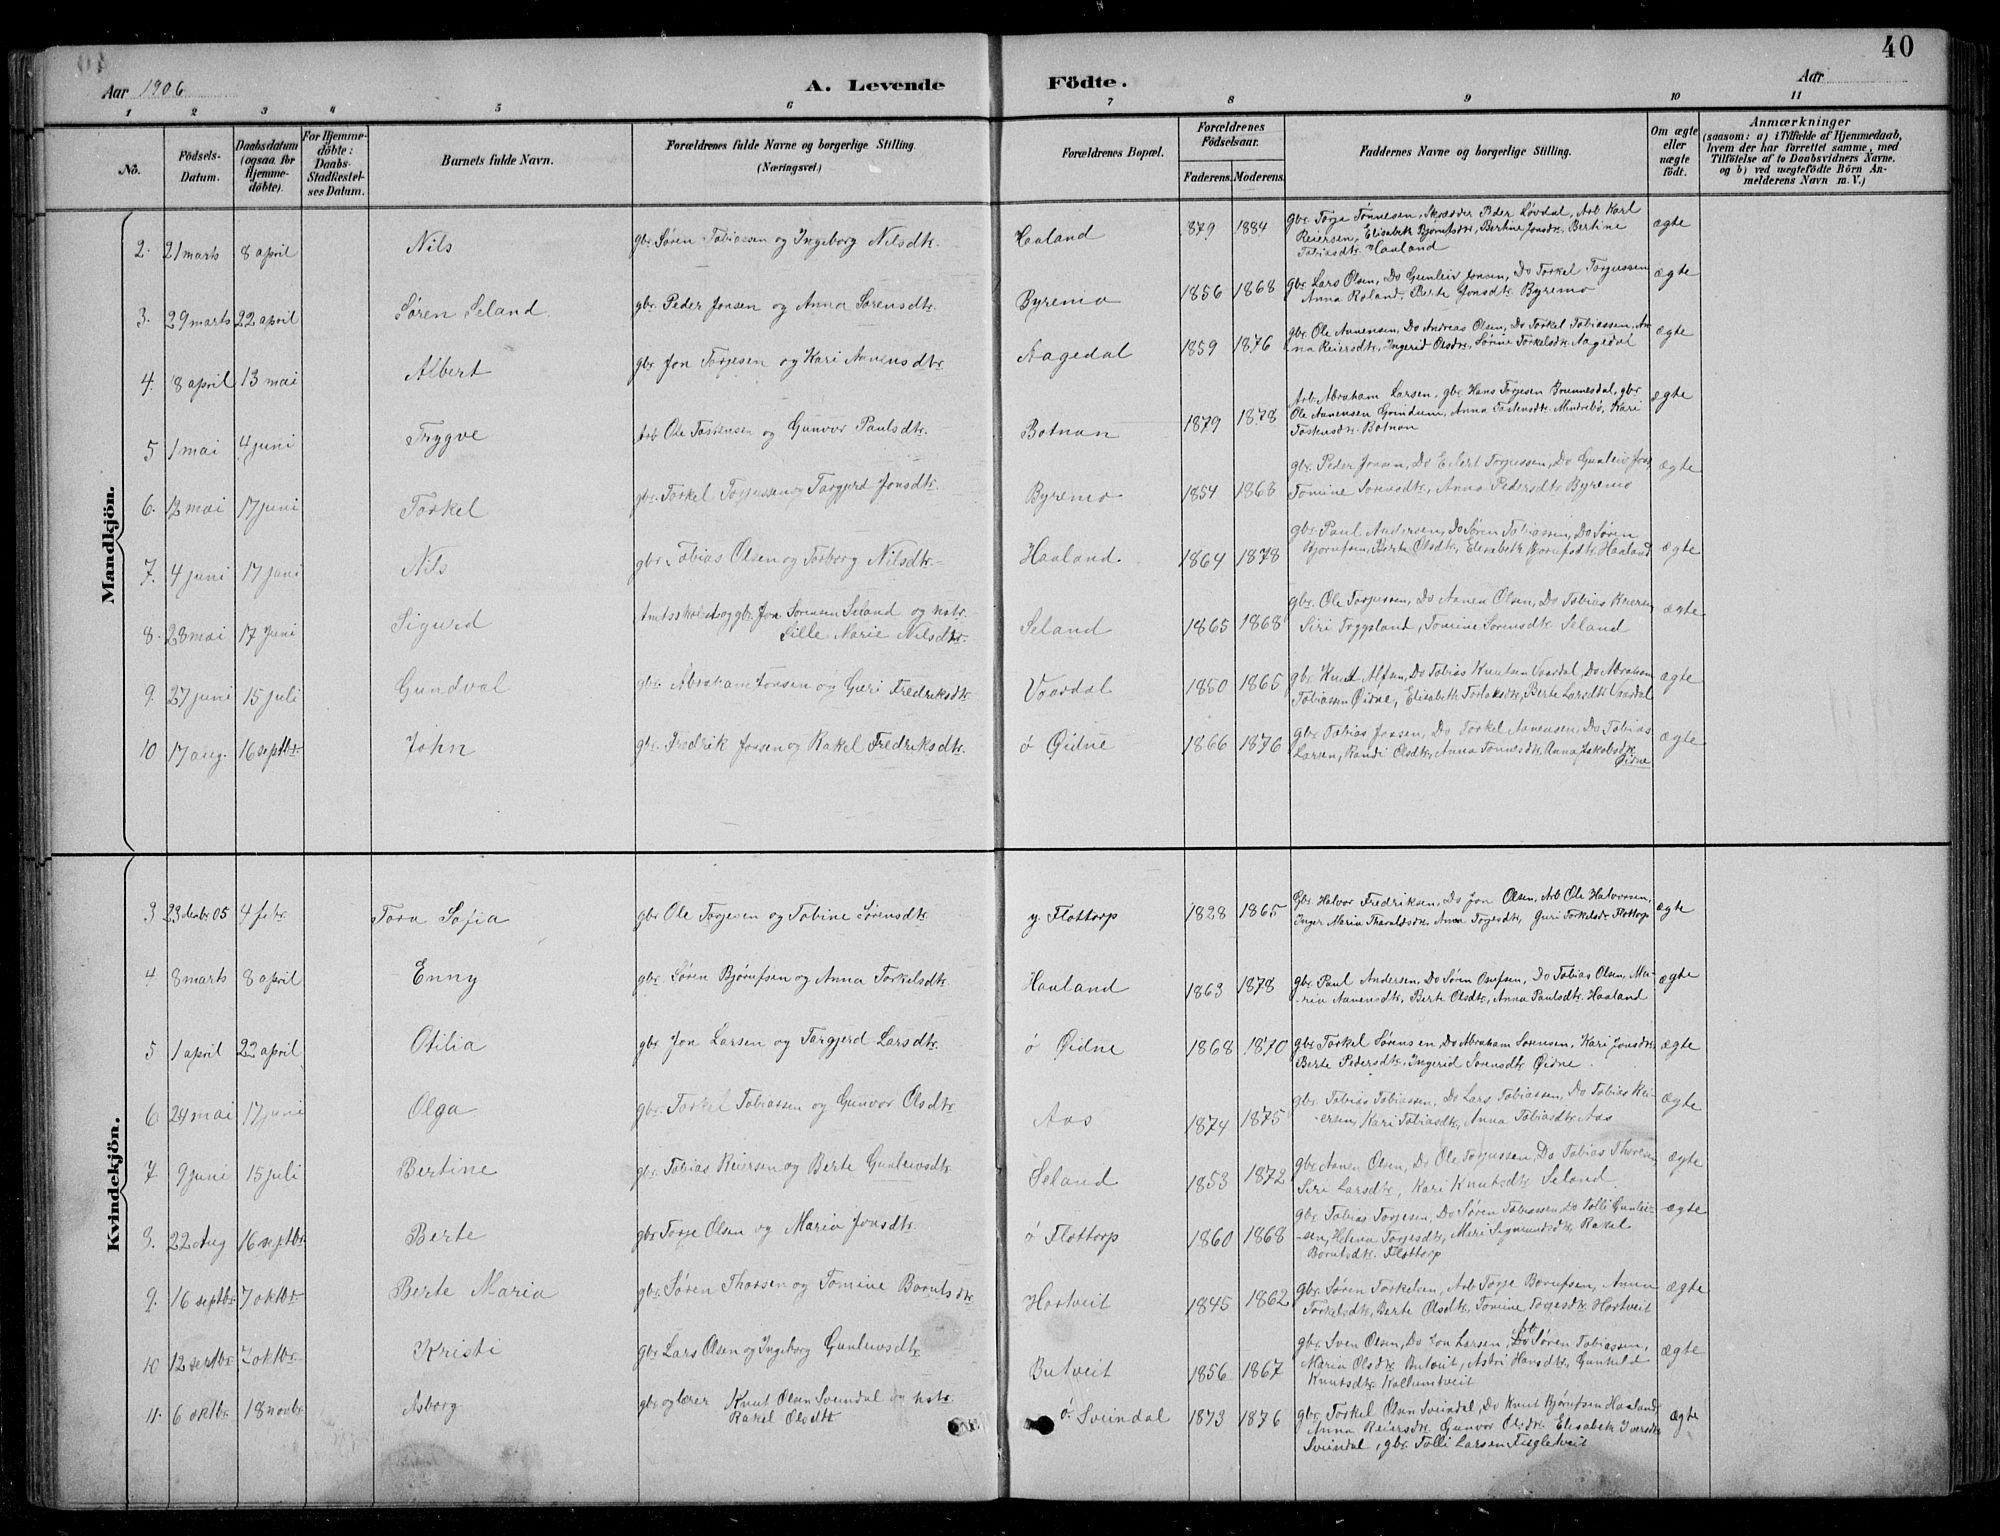 40
Aar 1906
A. Levende Födte.
Aar
1 2 3 4 5 6 7 8 9 10 11
No.
Födsels-Datum.
Daabsdatum (ogsaa for Hjemme-döbte).
For Hjemme-döbte: Daabs-Stadfæstel-ses Datum.
Barnets fulde Navn.
Forældrenes fulde Navne og borgerlige Stilling. (Næringsvei.)
Forældrenes Bopæl.
Forældrenes Födselsaar.
Faderens. Moderens.
Faddernes Navne og borgerlige Stilling.
Om ægte eller uægte födt.
Anmærkninger
(saasom: a) i Tilfælde af Hjemmedaab, hvem der har forrettet samme, med Tilföielse af to Daabsvidners Navne. og b) ved uægtefödte Börn An-melderens Navn m. V.)
Mandkjön.
2. 21 marts 8 april Nils gbr. Søren Tobiassen og Ingeborg Nilsdtr. Haaland 1879 1884 gbr. Torje Tønnesen, Skrædder Peder Løvdal, Arb. Karl
Reiersen, Elisabeth Bjornfsdtr., Bertine Jonsdtr., Bertine
Tobiasdtr. Haaland ægte
3. 29 marts 22 april Søren Seland gbr. Peder Jonsen og Anna Sørensdtr. Byremo 1856 1868 gbr. Lars Olsen, Do Gunleiv Jonsen, Do Torkel Torjussen
Anna Røland, Berte Jonsdtr. Byremo ægte
4. 8 april 13 mai Albert gbr. Jon Torjesen og Kari Aanensdtr Aagedal 1859 1876 gbr. Ole Aanensen, Do Andreas Olsen, Do Torkel Tobiassen, An-
na Reiersdtr, Ingerid Olsdtr., Sørine Torkelsdtr. Aagedal ægte
5 1 mai 4 juni Trygve Arb Ole Tostensen og Gunvor Paulsdtr. Botnan 1879 1878 Arb. Abraham Larsen, gbr. Hans Torjesen Brunnesdal, gbr.
Ole Aanensen Grindum, Anna Tostensdtr. Mindrebø, Kari
Tostensdtr. Botnan ægte
6. 13 mai 17 juni Torkel gbr. Torkel Torjussen og Targjerd Jonsdtr. Byremo 1854 1863 gbr. Peder Jonsen, Do Eilert Torjussen, Do Gunleiv Jons.
Tomine Sørensdtr., Anna Pedersdtr. Byremo ægte
7. 4 juni 17 juni Nils gbr. Tobias Olsen og Torborg Nilsdtr. Haaland. 1864 1878 gbr. Paul Andersen, Do Søren Tobiassen, Do Søren
Bjornfsen, Berte Olsdtr., Elisabeth Bjornfsdtr. Haaland ægte
8. 28 mai 17 juni Sigurd gbr. Jon Sørensen Seland og hstr.
Sille Marie Nilsdtr. Seland 1865 1868 gbr. Ole Torjussen, Do Aanen Olsen, Do Tobias Reiersen
Siri Trygsland, Tomine Sørensdtr. Seland ægte
9. 27 juni 15 juli Gundval gbr. Abraham Jonsen og Guri Fredriksdtr Vaardal 1850 1865 gbr. Knut Alfsen, Do Tobias Knutsen Vaardal, Do Abraham
Tobiassen Øidne, Elisabeth Torlaksdtr, Berte Larsdtr. Vaardal ægte
10 17 aug. 16 septbr John gbr. Fredrik Jonsen og Rakel Fredriksdtr. ó Øidne 1866 1876 gbr. Tobias Jonsen, Do Torkel Aanensen, Do Tobias
Larsen, Randi Olsdtr., Anna Tønnesdtr. Anna Jakobsdtr.
Øidne ægte
Kvindekjön.
3 23 debr. 05 4 febr. Tora Sofia gbr. Ole Torjesen og Tobine Sørensdtr y. Flottorp 1828 1865 Gbr. Halvor Fredriksen, Do Jon Olsen, Arb Ole Halvorsen,
Inger Maria Tharaldsdtr. Anna Torjesdtr, Guri Torkelsdtr. Flottorp ægte
4 8 marts 8 april Enny gbr. Søren Bjørnfsen og Anna Torkelsdtr. Haaland 1863 1878 gbr. Paul Andersen, Do Søren Osufsen, Do Tobias Olsen, Ma-
ria Aanensdtr., Berte Olsdtr., Anna Paulsdtr. Haaland ægte
5 1 april 22 april Otilia gbr. Jon Larsen og Targjerd Larsdtr. ó Øidne 1868 1870 gbr. Torkel Sørensen, Do Abraham Sørensen, Kari Jonsdtr.
Berte Pedersdtr., Ingerid Sørensdtr. Øidne. ægte
6. 24 mai 17 juni Olga gbr. Torkel Tobiassen og Gunvor Olsdtr. Aas 1874 1875 gbr. Tobias Tobiassen, Do Lars Tobiassen, Do Tobias Rei-
ersen, Kari Tobiasdtr., Anna Tobiasdtr. Aas ægte
7 9 juni 15 juli Bertine gbr. Tobias Reiersen og Berte Gunleivsdtr. Seland 1853 1872 gbr. Aanen Olsen, Do Ole Torjussen, Do Tobias Thoresen
Siri Larsdtr., Kari Knutsdtr. Seland ægte
8. 22 Aug 16 septbr Berte gbr. Torje Olsen og Maria Jonsdtr. ó Flottorp 1860 1868 gbr. Tobias Torjesen, Do Søren Tobiassen, Do Tolli Gunlei-
sen, Helena Torjesdtr., Meri Sigmundsdtr. Rakel
Bornfsdtr. Flottorp ægte
9. 16 septbr 7 oktbr Berte Maria gbr. Søren Thorsen og Tomine Bornfsdtr. Hortveit 1845 1862 gbr. Søren Torkelsen, Arb Torje Bornfsen, Anna
Torkelsdtr. Berte Olsdtr., Tomine Torjesdtr. Hortveit ægte
10 12 septbr 7 oktbr. Kristi gbr. Lars Olsen og Ingeborg Gunleivsdtr. Butveit 1856 1867 gbr. Sven Olsen, Do Jon Larsen, Søren Tobiassen,
Maria Olsdtr. Butveit, Astri Hansdtr., Gunhild
Knutsdtr. Kollumtveit ægte
11. 6 oktbr. 18 novbr. Asborg gbr og lærer Knut Olsen Sveindal og hstr.
Rakel Olsdtr. ó. Sveindal 1873 1876 gbr. Torkel Olsen Sveindal, Do Knut Bjørnfsen Haaland
Anna Reiersdtr. Gunvor Olsdtr. Elisabeth Iversdtr
Sveindal, gbr. Tolli Larsen Fuglestveit ægte